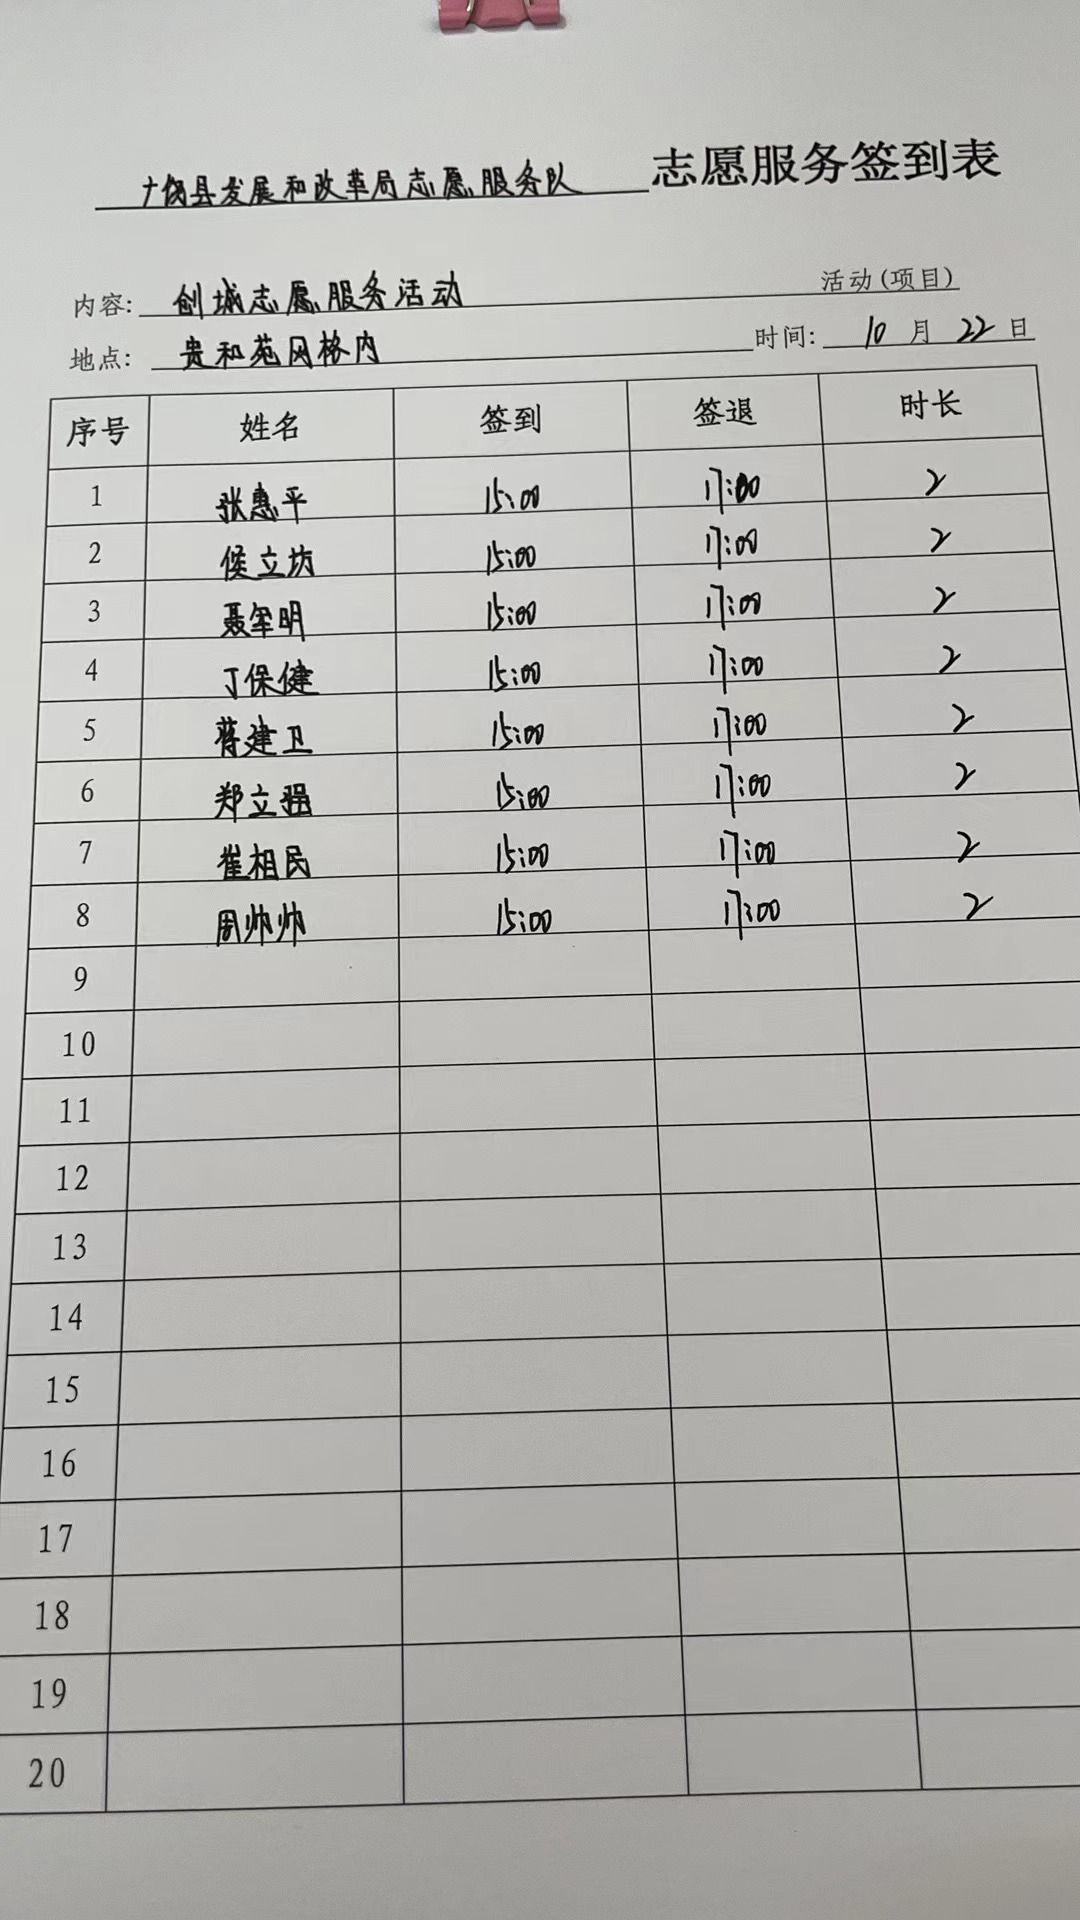 广饶县发展和改革局志愿服务队 志愿服务签到表
内容: 创城志愿服务活动 活动(项目)
地点: 贵和苑网格内 时间: 10 月 22 日
序号 姓名 签到 签退 时长
1 张惠平 15:00 17:00 2
2 侯立坊 15:00 17:00 2
3 聂军明 15:00 17:00 2
4 丁保健 15:00 17:00 2
5 蒋建卫 15:00 17:00 2
6 郑立强 15:00 17:00 2
7 崔相民 15:00 17:00 2
8 周帅帅 15:00 17:00 2
9
10
11
12
13
14
15
16
17
18
19
20